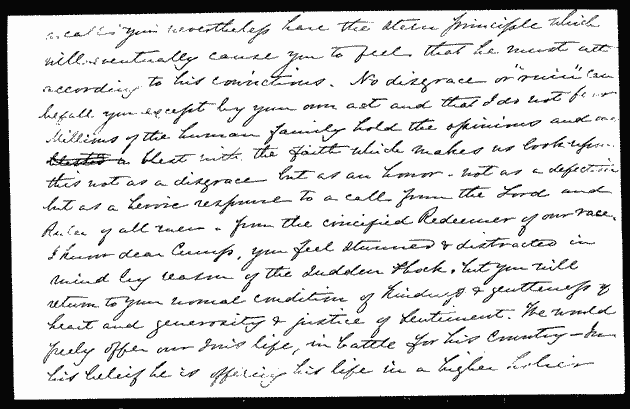 you nevertheless have the stern principle which
will eventually cause you to feel that he must act
according to his convictions. No disgrace or "ruin" can
befall you except by your own act and that I do not fear
Millions of the human family hold the opinions and are
blest with the faith which makes us look upon
this not as a disgrace but as an honor - not as a defection
but as a heroic response to a call from the Lord and
Ruler of all men - from the crucified Redeemer of our race.
I know dear Cump, you feel stunned & distracted in
mind by reason of the sudden shock, but you will
return to your normal condition of kindness & gentleness of
heart and generosity & justice of sentiment. We would
freely offer our Son's life, in battle for his Country - In
his beleif he is offering his life in a higher holier